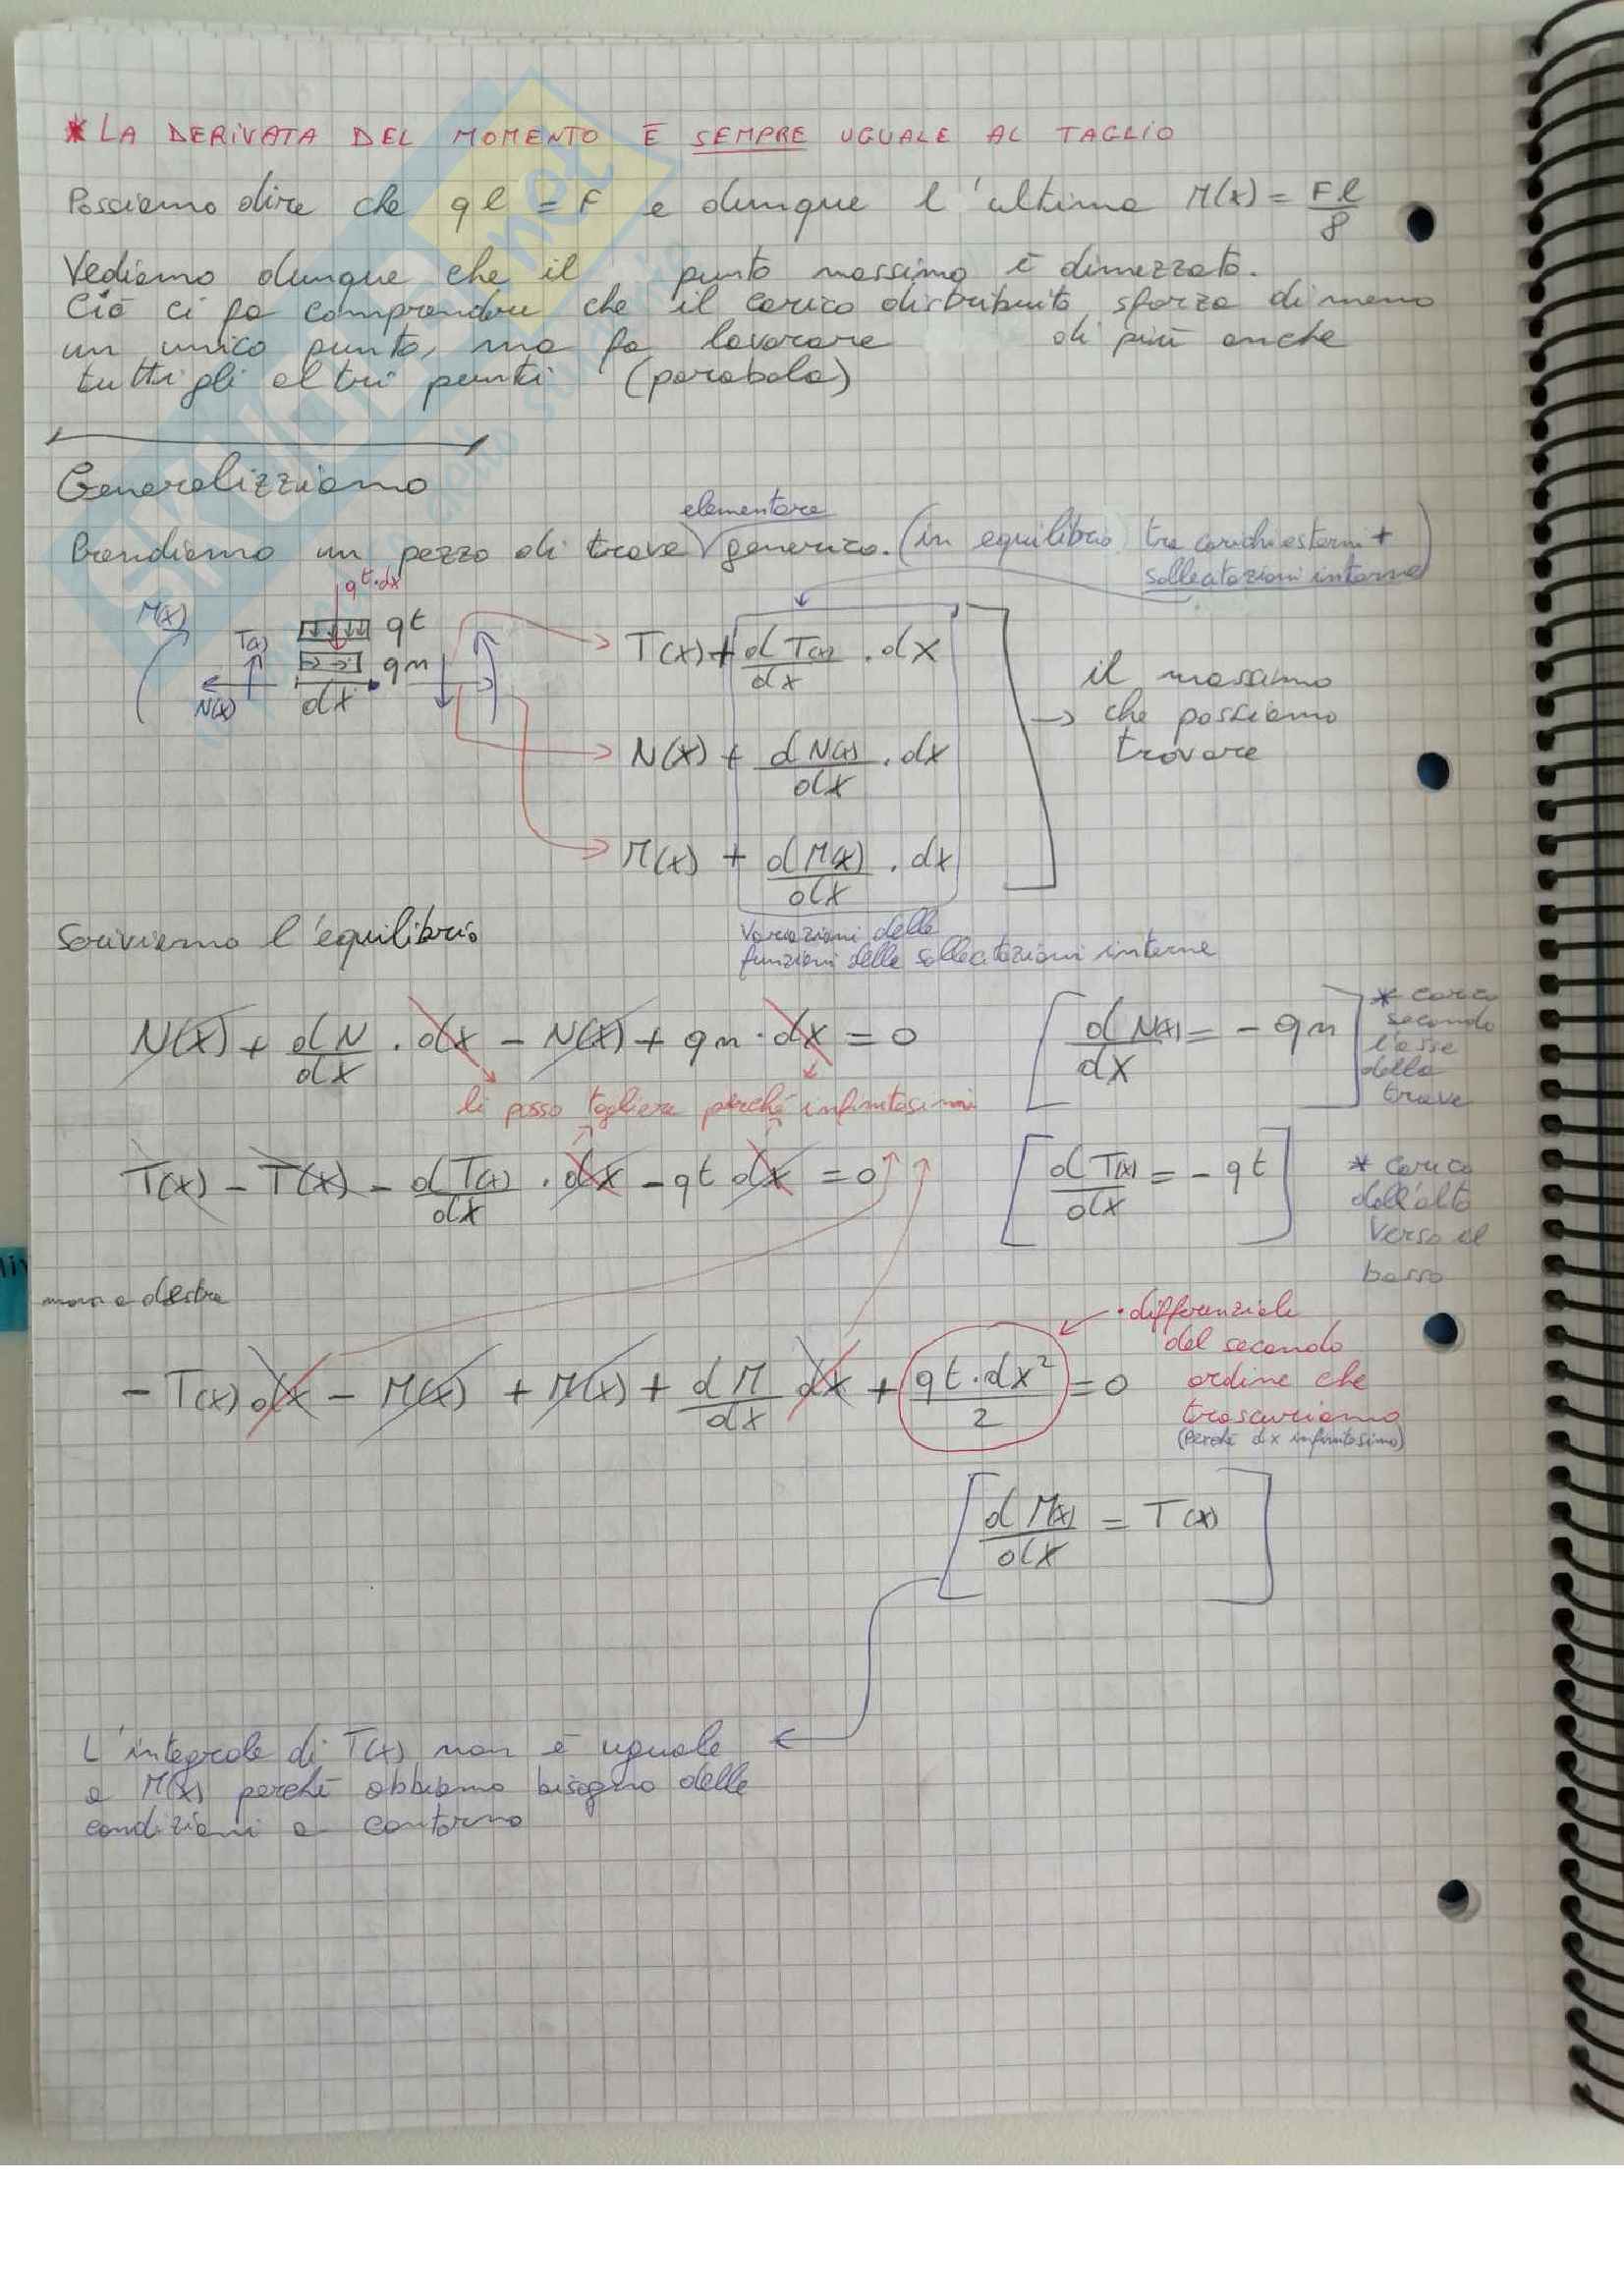 * LA DERIVATA DEL MOMENTO È SEMPRE UGUALE AL TAGLIO
Possiamo dire che ql = F e dunque l'ultima M(x) = Fl/8
Vediamo dunque che il punto massimo è dimezzato.
Ciò ci fa comprendere che il carico distribuito sforza di meno
un unico punto, ma fa lavorare di più anche
tutti gli altri punti (parabola)
Generalizziamo
elementare
Prendiamo un pezzo di trave generico. (in equilibrio tra carichi esterni +
sollecitazioni interne)
qt·dx
M(x)
T(x)
qt
qn
N(x)
dx
T(x) + dT(x)/dx · dx
N(x) + dN(x)/dx · dx
M(x) + dM(x)/dx · dx
il massimo
che possiamo
trovare
Variazioni delle
funzioni delle sollecitazioni interne
Scriviamo l'equilibrio
N(x) + dN/dx · dx - N(x) + qn · dx = 0
li posso togliere perché infinitesimi
[dN(x)/dx = - qn]
* carico
secondo
l'asse
della
trave
T(x) - T(x) - dT(x)/dx · dx - qt dx = 0
[dT(x)/dx = - qt]
* carico
dall'alto
verso il
basso
a destra
- T(x) dx - M(x) + M(x) + dM/dx dx + qt·dx²/2 = 0
· differenziale
del secondo
ordine che
trascuriamo
(perché dx infinitesimo)
[dM(x)/dx = T(x)]
L'integrale di T(x) non è uguale
a M(x) perché abbiamo bisogno delle
condizioni a contorno
SKUOLA.net